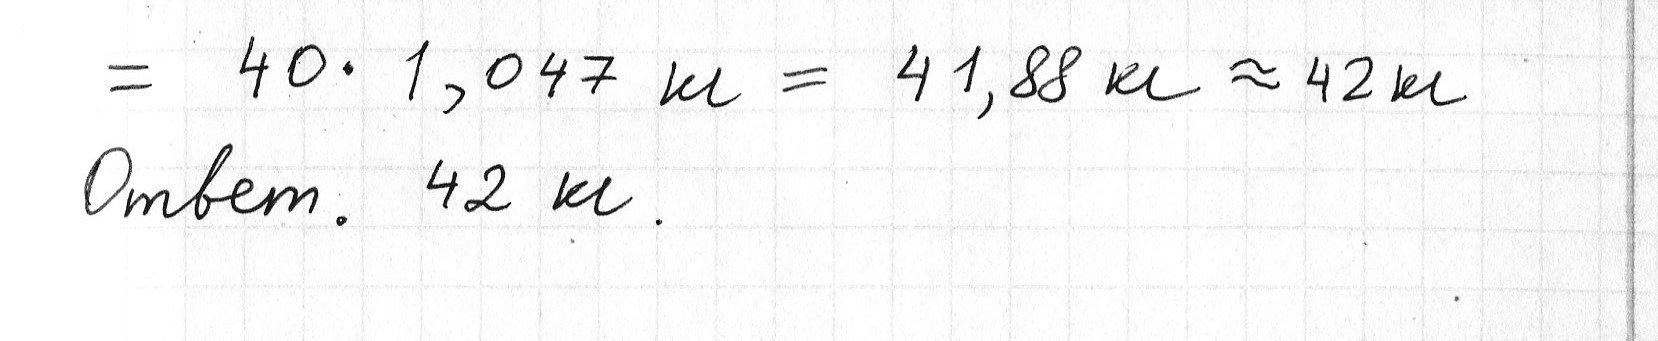 = 40 · 1,047 кг = 41,88 кг ≈ 42 кг
Ответ. 42 кг.